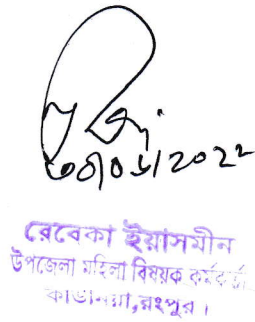 ৩০/০৬/2022
রেবেকা ইয়াসমীন
উপজেলা মহিলা বিষয়ক কর্মকর্তা
কাউনিয়া,রংপুর।